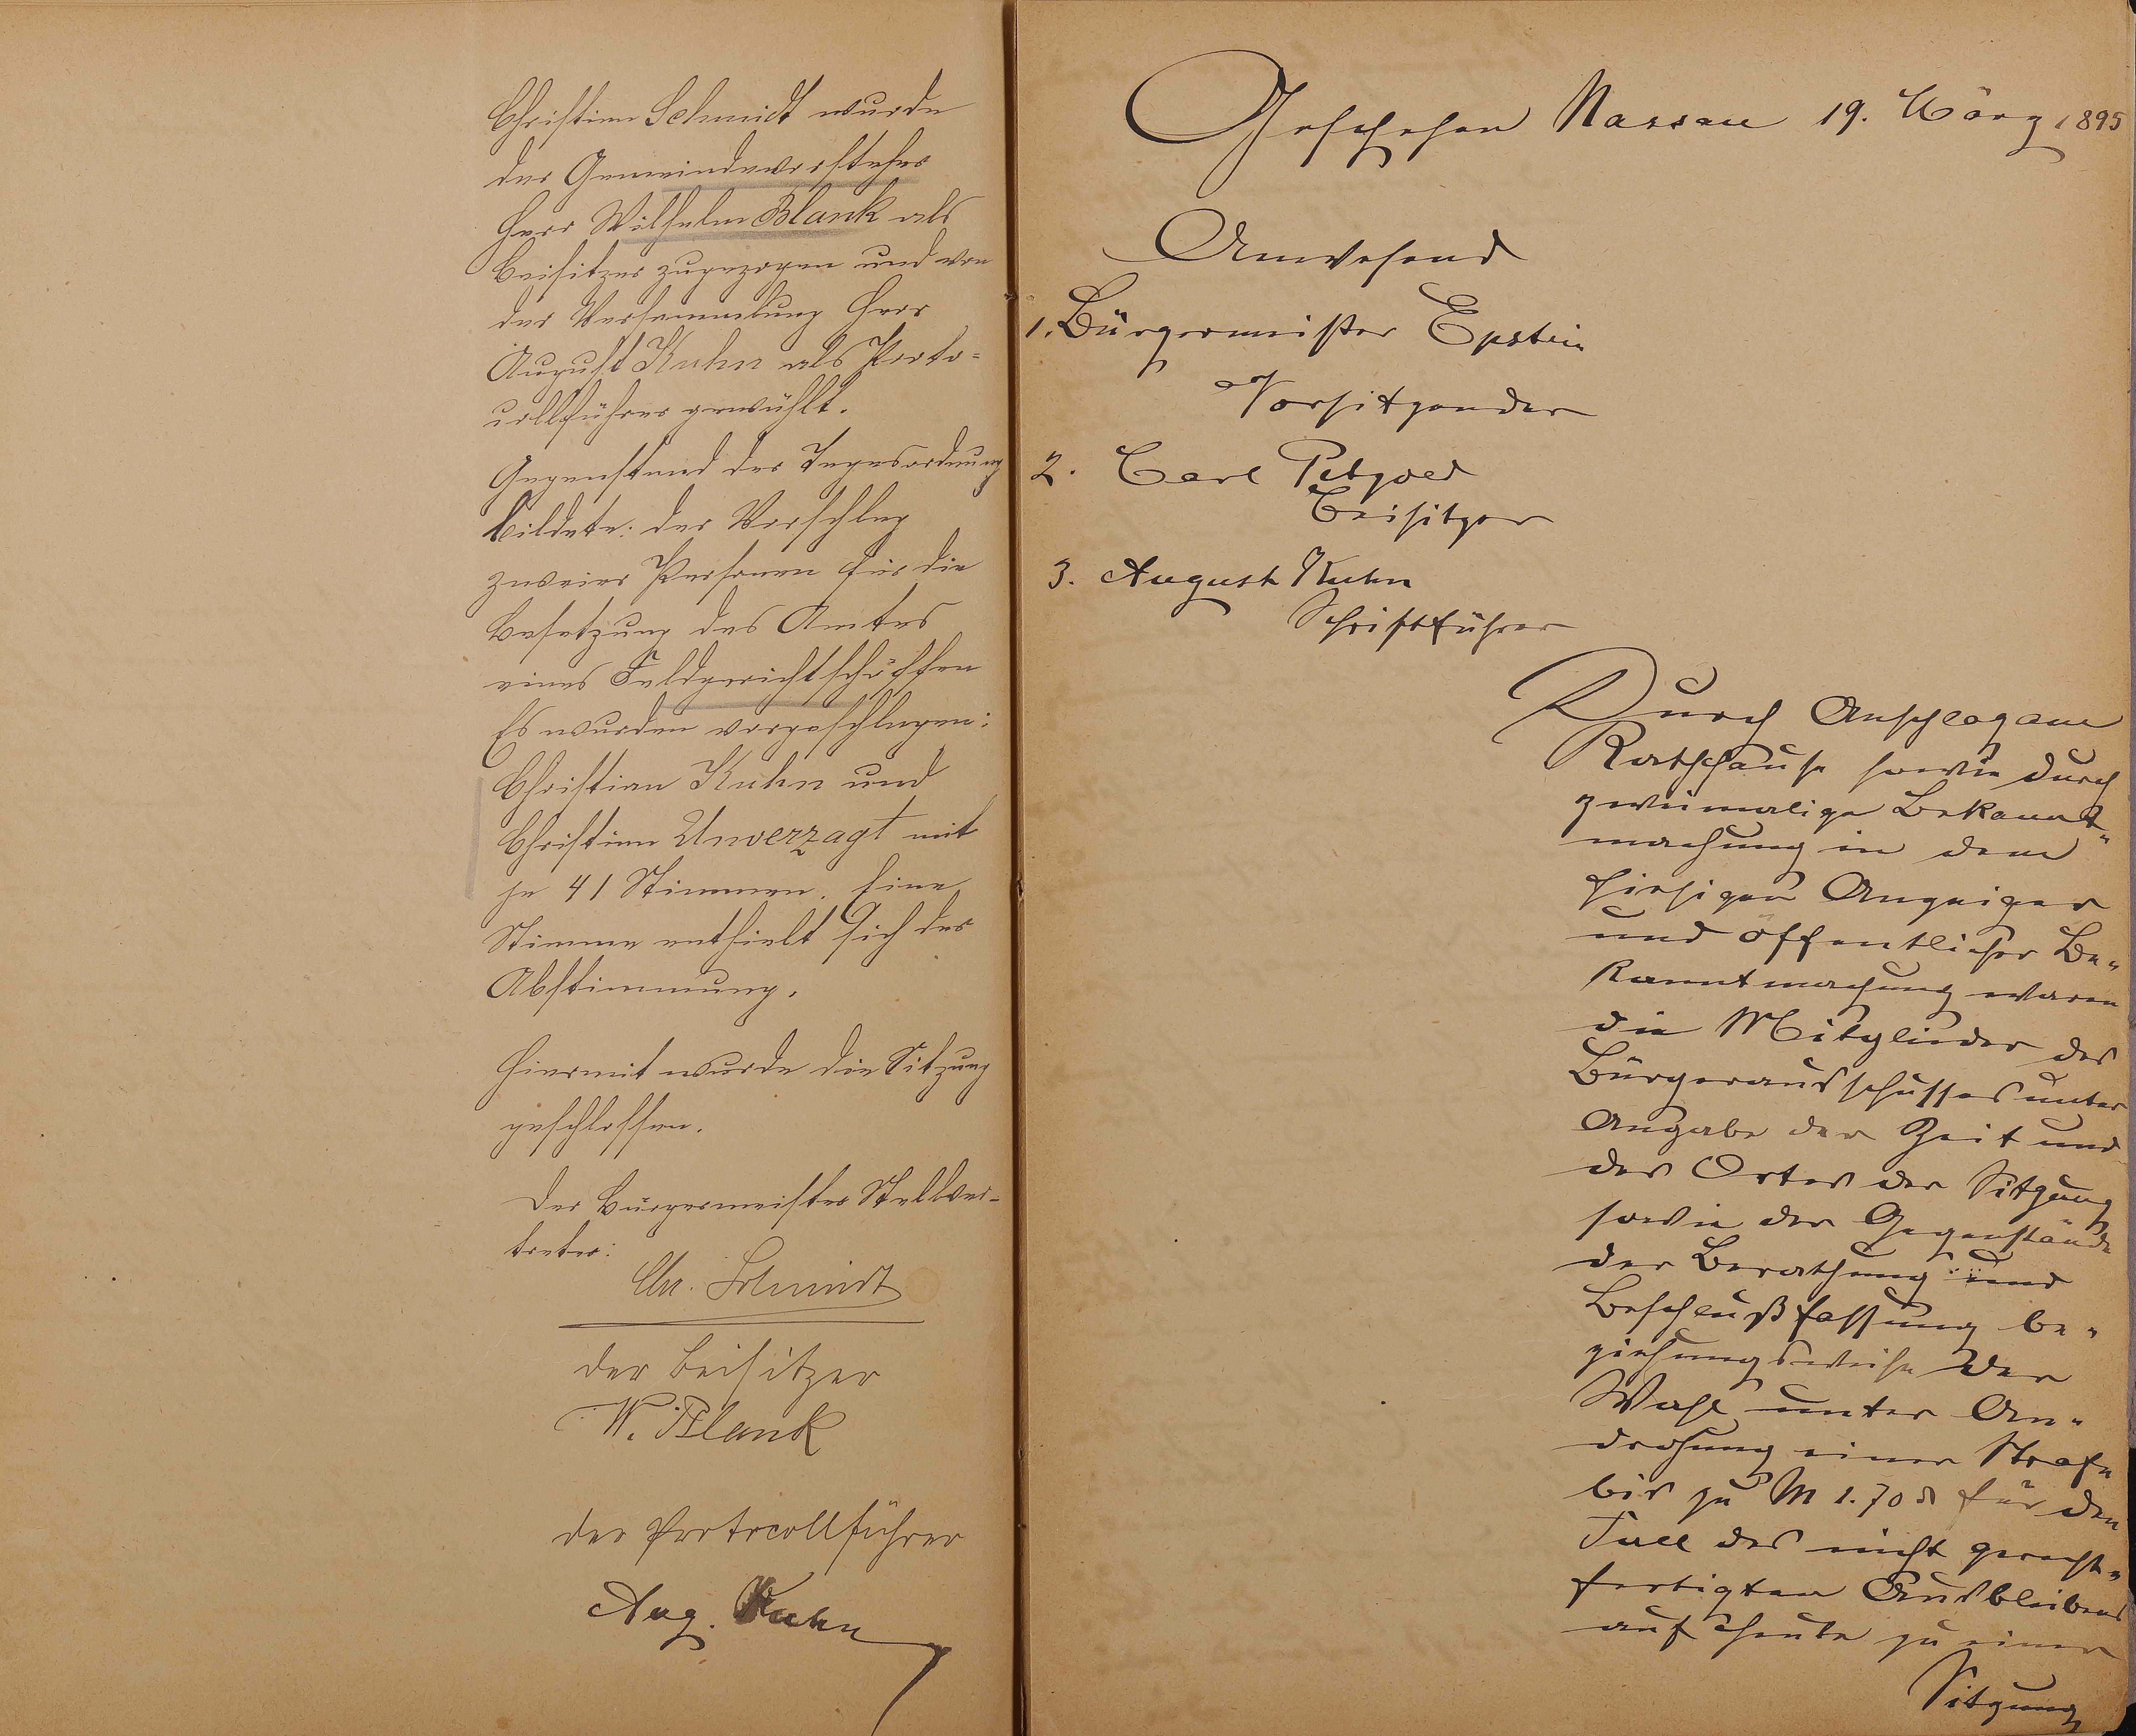 Christian Schmidt wurde
der Gemeindevorsteher
Herr Wilhelm Blank als
Beisitzer zugezogen und von
der Versammlung Herr
August Kuhn als Proto=
collführer gewählt.
Gegenstand der Tagesordnung
bildete: der Vorschlag
zweier Personen für die
Besetzung des Amtes
eines Feldgerichtschöffen
Es wurden vorgeschlagen:
Christian Kuhn und
Christian Unverzagt mit
je 41 Stimmen. Eine
Stimme enthielt sich der
Abstimmung.
Hiermit wurde die Sitzung
geschlossen.
Der Bürgermeister Stellver-
treter:
Chr. Schmidt
der Beisitzer
W. Blank
der Protocollführer
Aug. Kuhn
Geschehen Nassau 19. März 1895
Anwesend
1. Bürgermeister Epstein
Vorsitzender
2. Carl
Beisitzer
3. August Kuhn
Schriftführer
Durch Anschlag am
Rathhause sowie durch
zweimalige Bekannt"
machung in dem
hiesigen Anzeiger
und öffentlicher Be"
kanntmachung waren
die Mitglieder des
Bürgerausschusses unter
Angabe der Zeit und
des Ortes der Sitzung
sowie der Gegenstände
der Berathung und
Beschlußfassung be"
ziehungsweise der
Wahl unter An"
drohung einer Strafe
bis zu M 1.70 ₰ für den
Fall des nicht gerecht"
fertigten Ausbleibens
auf heute zu einer
Sitzung